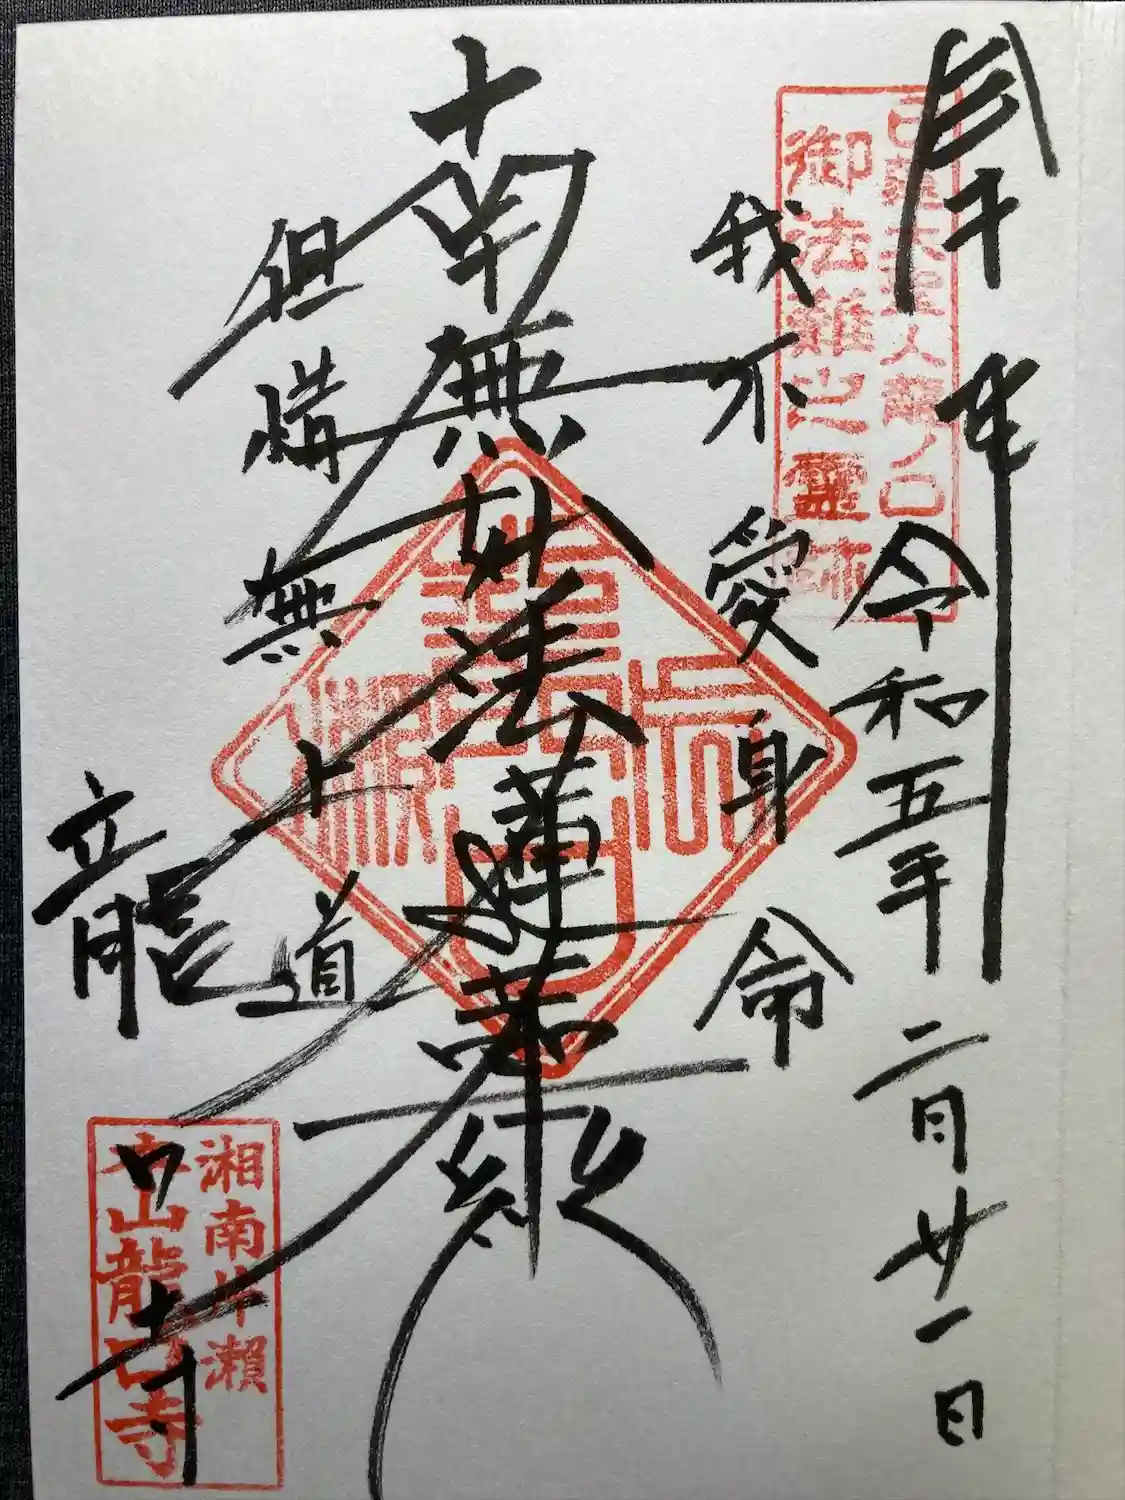 奉拝
令和五年二月廿一日
高祖大聖人龍ノ口
御法難之霊跡
我不愛身命
南無妙法蓮華経
但惜無上道
龍口寺
湘南片瀬
本山龍口寺